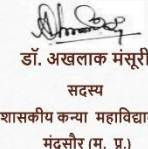 डॉ. अखलाक मंसूरी
सदस्य
शासकीय कन्या महाविद्या
मंदसौर (म. प्र.)